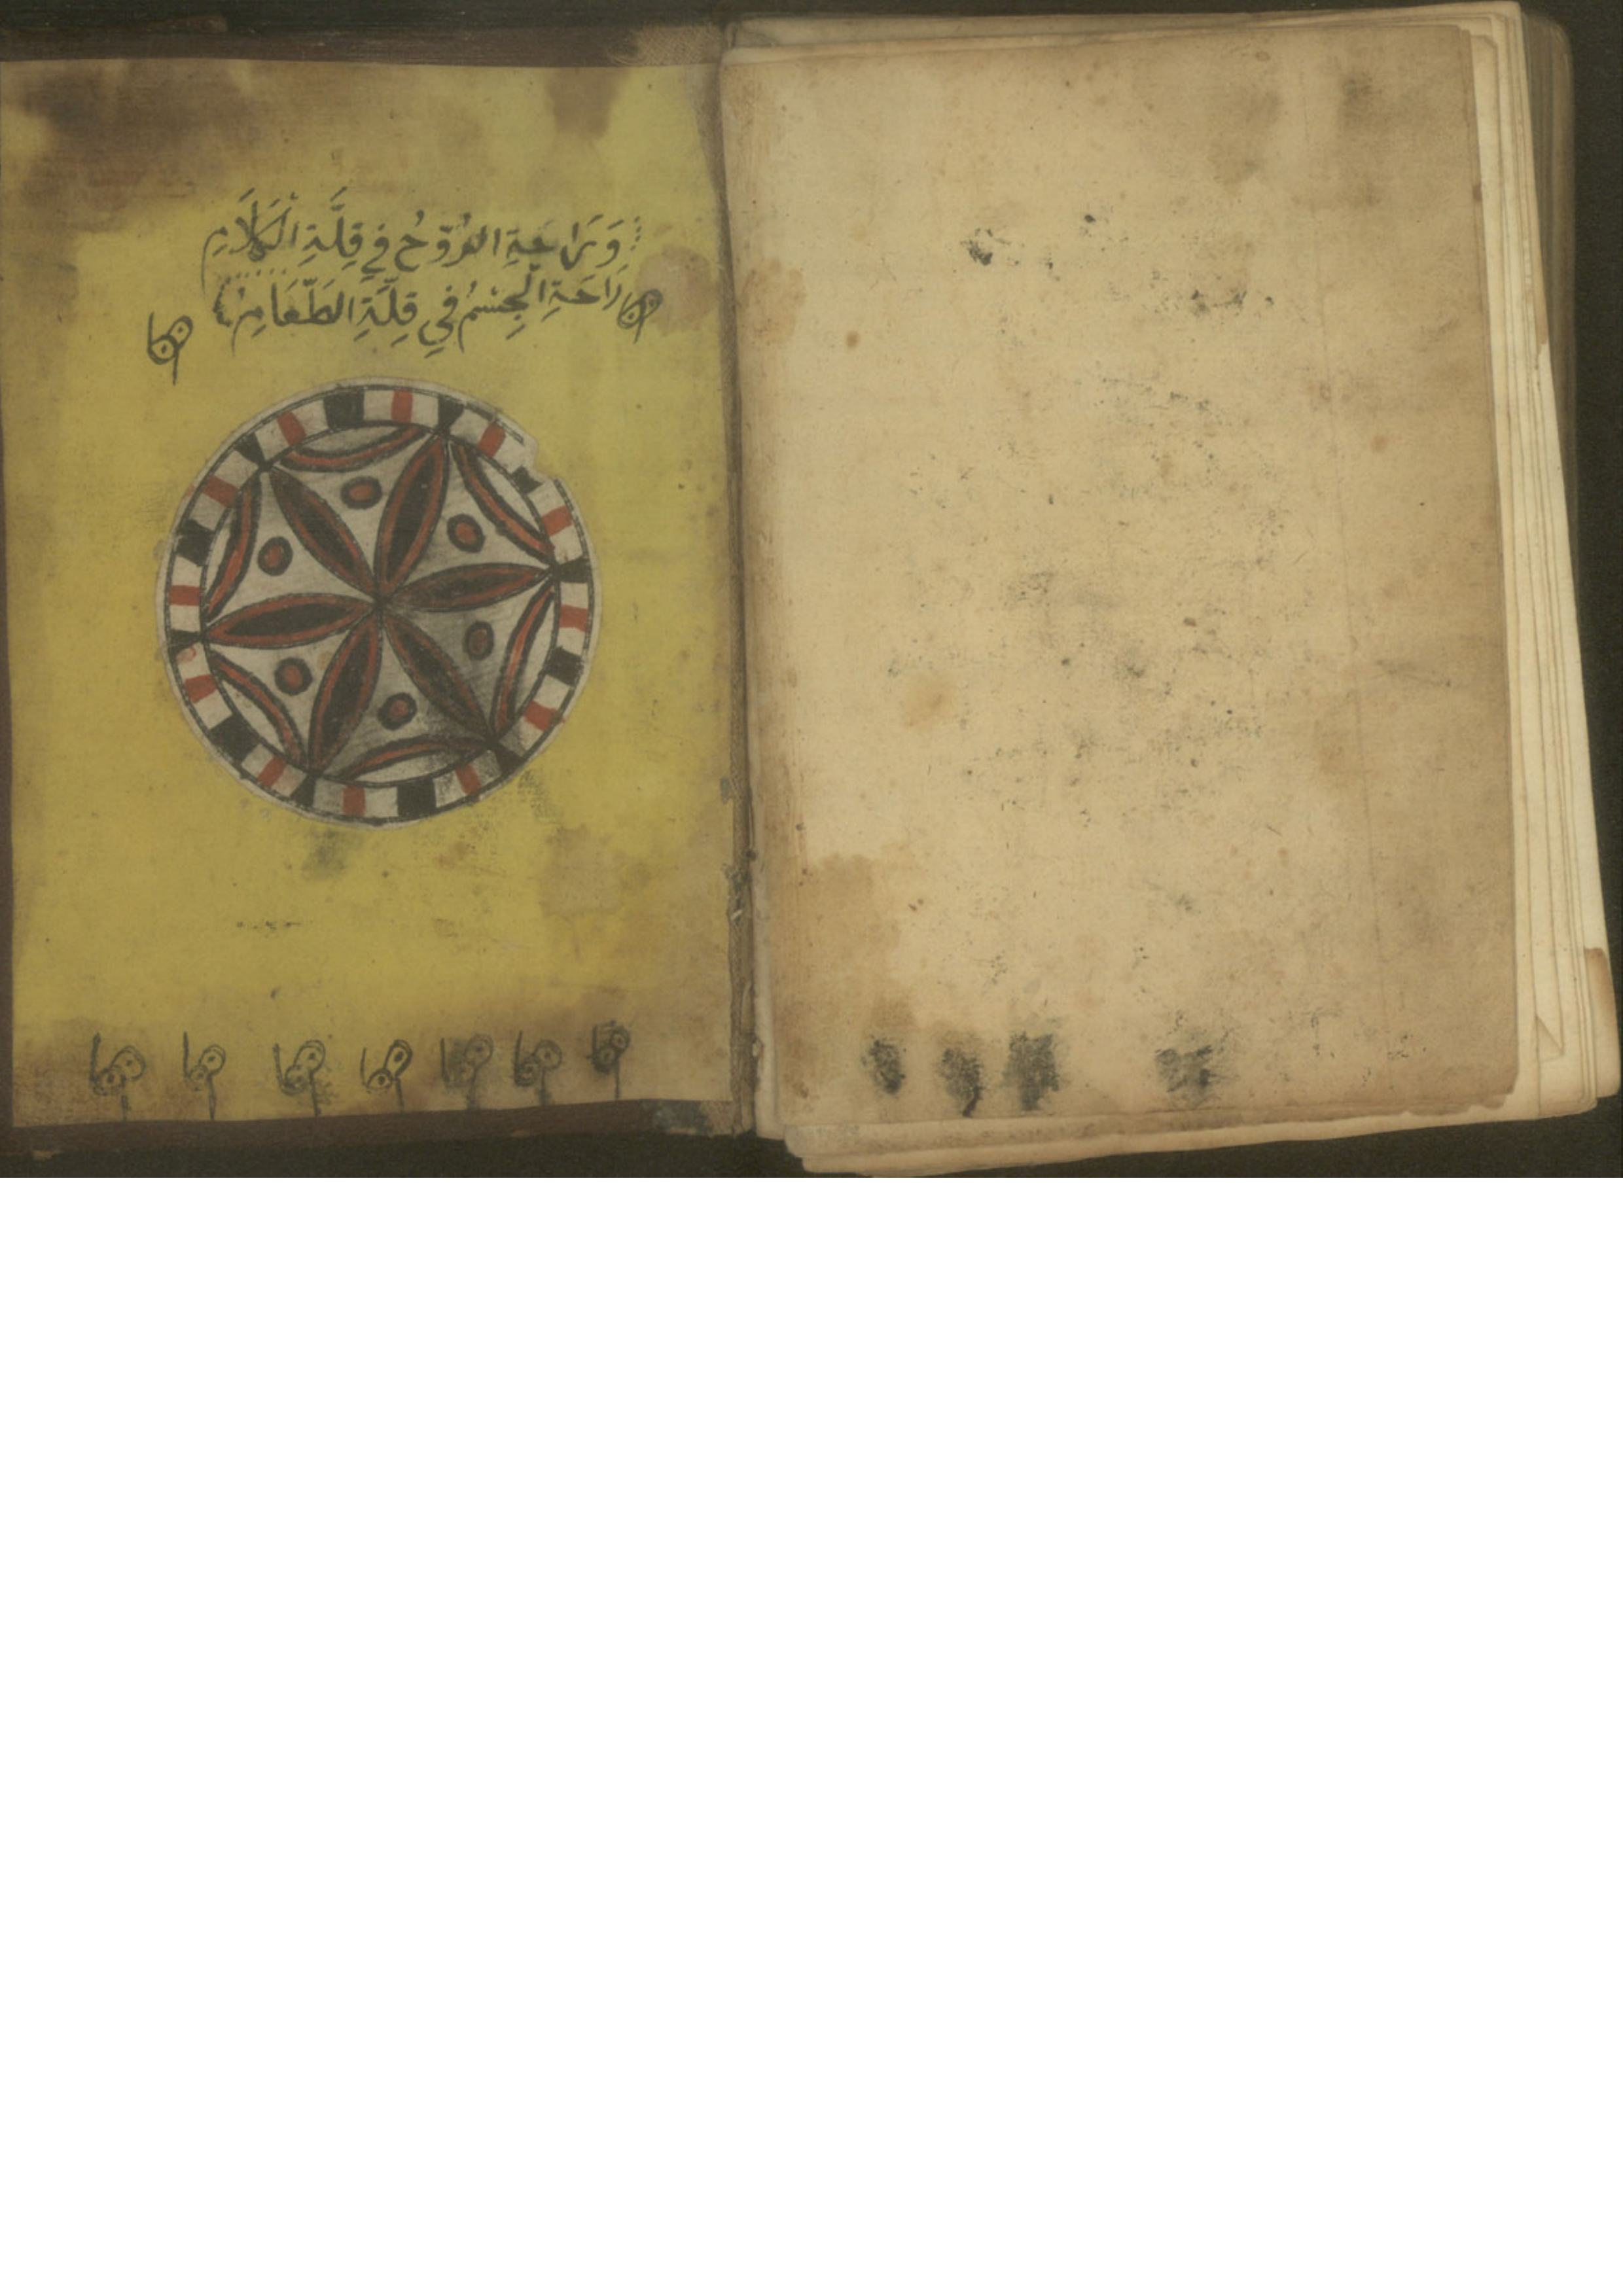 وَرَاحَةِ الرُّوْحُ فِي قِلَّةِ الْكَلَامِ
رَاحَةِ الْجِسْمُ فِي قِلَّةِ الطَّعَامِ